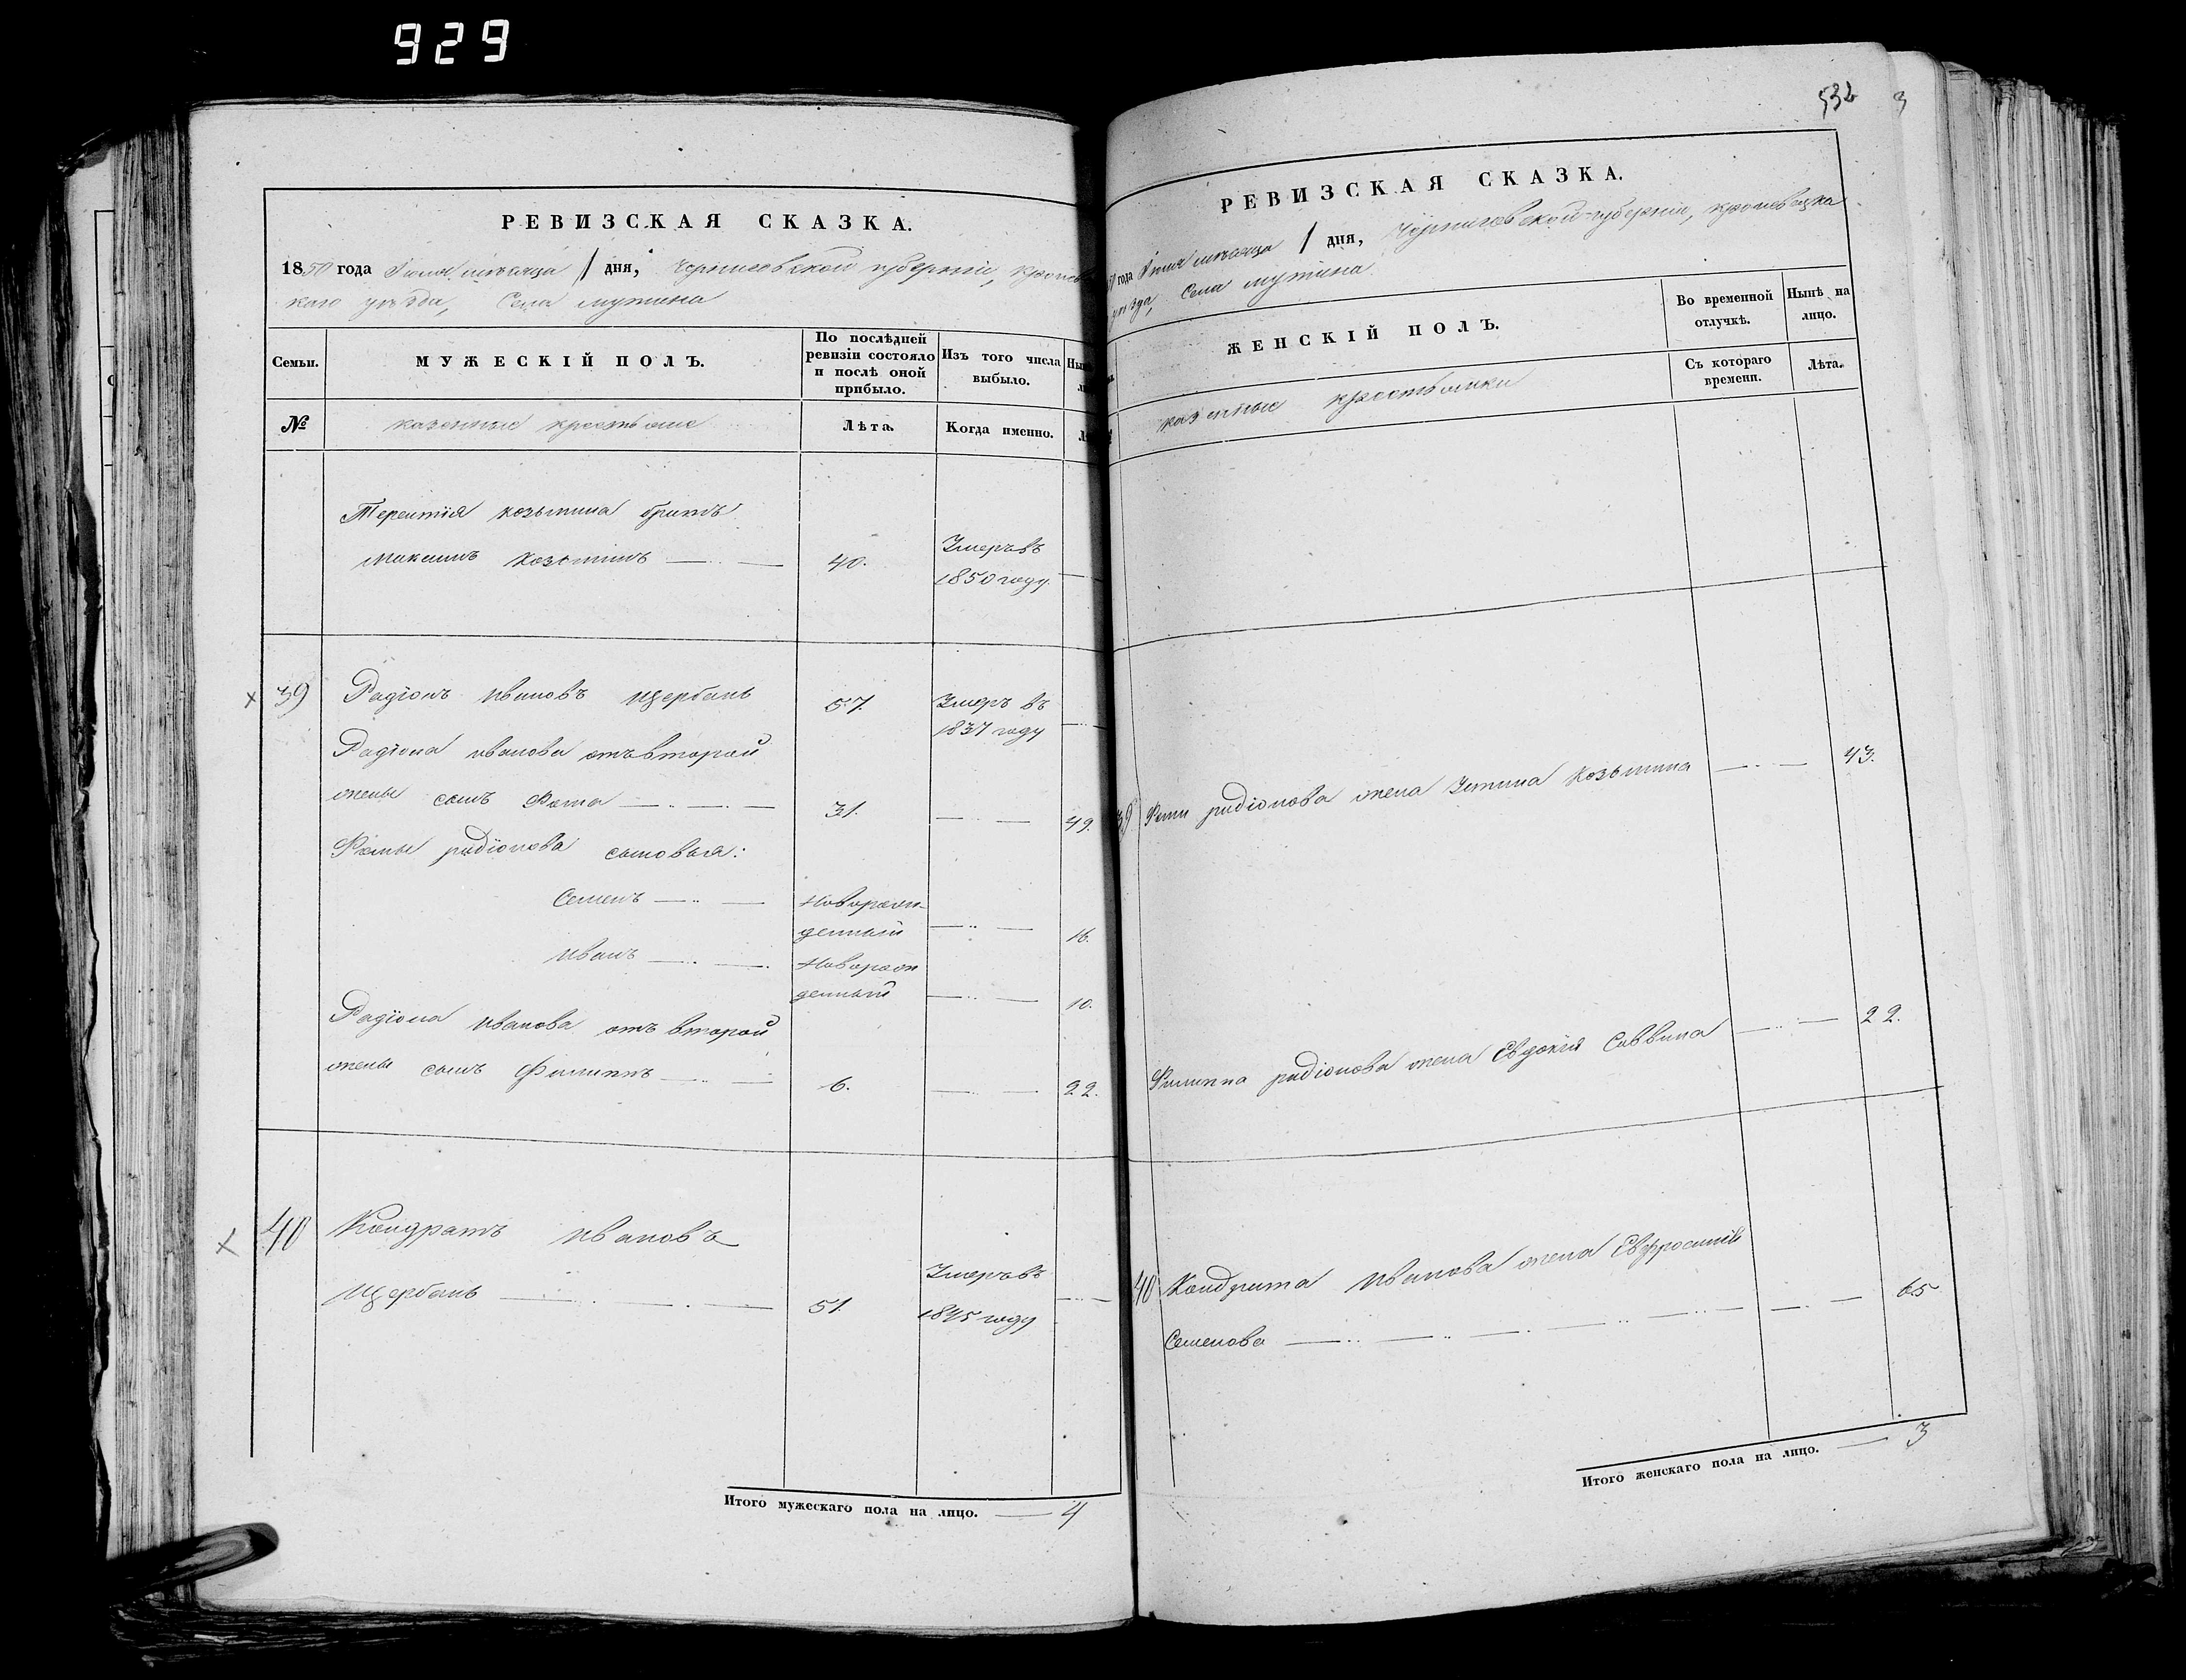 929
РЕВИЗСКАЯ СКАЗКА.
1850 года Іюля мѣсяца 1 дня, Черниговской губерніи, Кролевец
каго уѣзда, Села Мутина
Семьи.
МУЖЕСКІЙ ПОЛЪ.
По послѣдней ревизіи состояло и послѣ оной прибыло.
Изъ того числа выбыло.
№
казенные крестьяне
Лѣта.
Когда именно.
Терентія Козьмина братъ
Максимъ Козьминъ 40. Умеръ въ
1850 году.
39 Радіонъ Ивановъ Щербань 57. Умеръ въ
1837 году
Радіона Иванова отъ второй
жены сынъ Фома 31. 49.
Фомы Радіонова сыновья:
Семенъ Новорож-
денный 16.
Иванъ Новорож
денный 10.
Радіона Иванова отъ второй
жены сынъ Филиппъ 6. 22.
40 Кондратъ Ивановъ
Щербань 51. Умеръ въ
1845 году
Итого мужескаго пола на лицо. 4
532
3
РЕВИЗСКАЯ СКАЗКА.
года Іюля мѣсяца 1 дня, Черниговской губерніи, Кролевецка
уѣзда, Села Мутина
ЖЕНСКІЙ ПОЛЪ.
Во временной отлучкѣ.
Нынѣ на лицо.
Съ котораго времени.
Лѣта.
казенные крестьянки
39 Фомы Радіонова жена Устина Козьмина 43.
Филиппа Радіонова жена Евдокія Саввина 22.
40 Кондрата Иванова жена Евфросинія
Семенова 65
Итого женскаго пола на лицо. 3